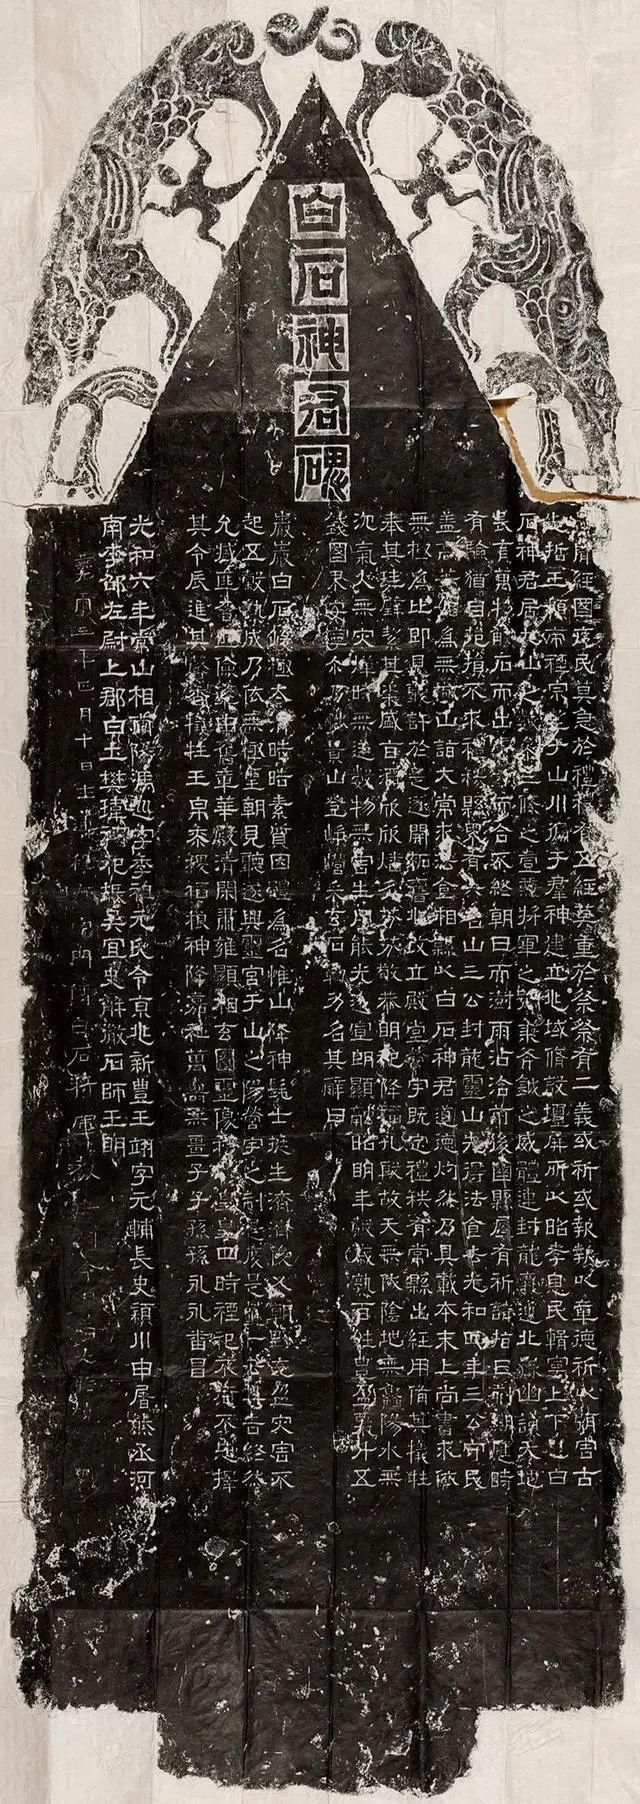 白石神君碑
聞經國序民莫急於禮禮有五經莫重於祭祭有二義或祈或報報以章德祈以弭害古
先哲王類帝禋宗望于山川徧于羣神建立兆域修設壇屏所以昭孝息民輯寧上下也白
石神君居九山之數參三條之壹兼將軍之號秉斧鉞之威體連封龍氣通北嶽幽讚天地
長育萬物觸石而出膚寸而合不終朝日而澍雨沾洽前後國縣屢有祈請指日刻期應時
有驗猶自挹損不求禮秩縣界有六名山三公封龍靈山先得法食去光和四年三公守民
蓋高等始爲無極山詣大常求法食相縣以白石神君道德灼然乃具載本末上尚書求依
無極爲比即見聽許於是遂開拓舊兆改立殿堂營宇既定禮秩有常縣出經用備其犧牲
奉其珪璧絜其粢盛旨酒欣欣燔炙芬芬敬恭明祀降福孔殷故天無伏陰地無鱻陽水無
沉氣火無災燀時無逆數物無害生用能光遠宣朗顯融昭明年穀歲熟百姓豐盈粟升五
錢國界安寧爾乃陟景山登崢嶸采玄石勒功名其辭曰
巖巖白石峻極太清皓皓素質因體爲名惟山降神髦士挺生濟濟俊乂朝野充盈災害不
起五穀熟成乃依無極聖朝見聽遂興靈宮于山之陽營宇之制是度是量卜云其吉終然
允臧匪奢匪儉率由舊章華殿清閑肅雍顯相玄圖靈像穆穆皇皇四時禋祀不愆不忘擇
其令辰進其馨香犧牲玉帛黍稷稻糧神降嘉祉萬壽無畺子子孫孫永永番昌
光和六年常山相南陽馮巡字季祖元氏令京兆新豐王翊字元輔長史潁川申屠熊丞河
南李邵左尉上郡白土樊瑋祠祀掾吳宜史解微石師王明
三年四月十日 門 白石將軍